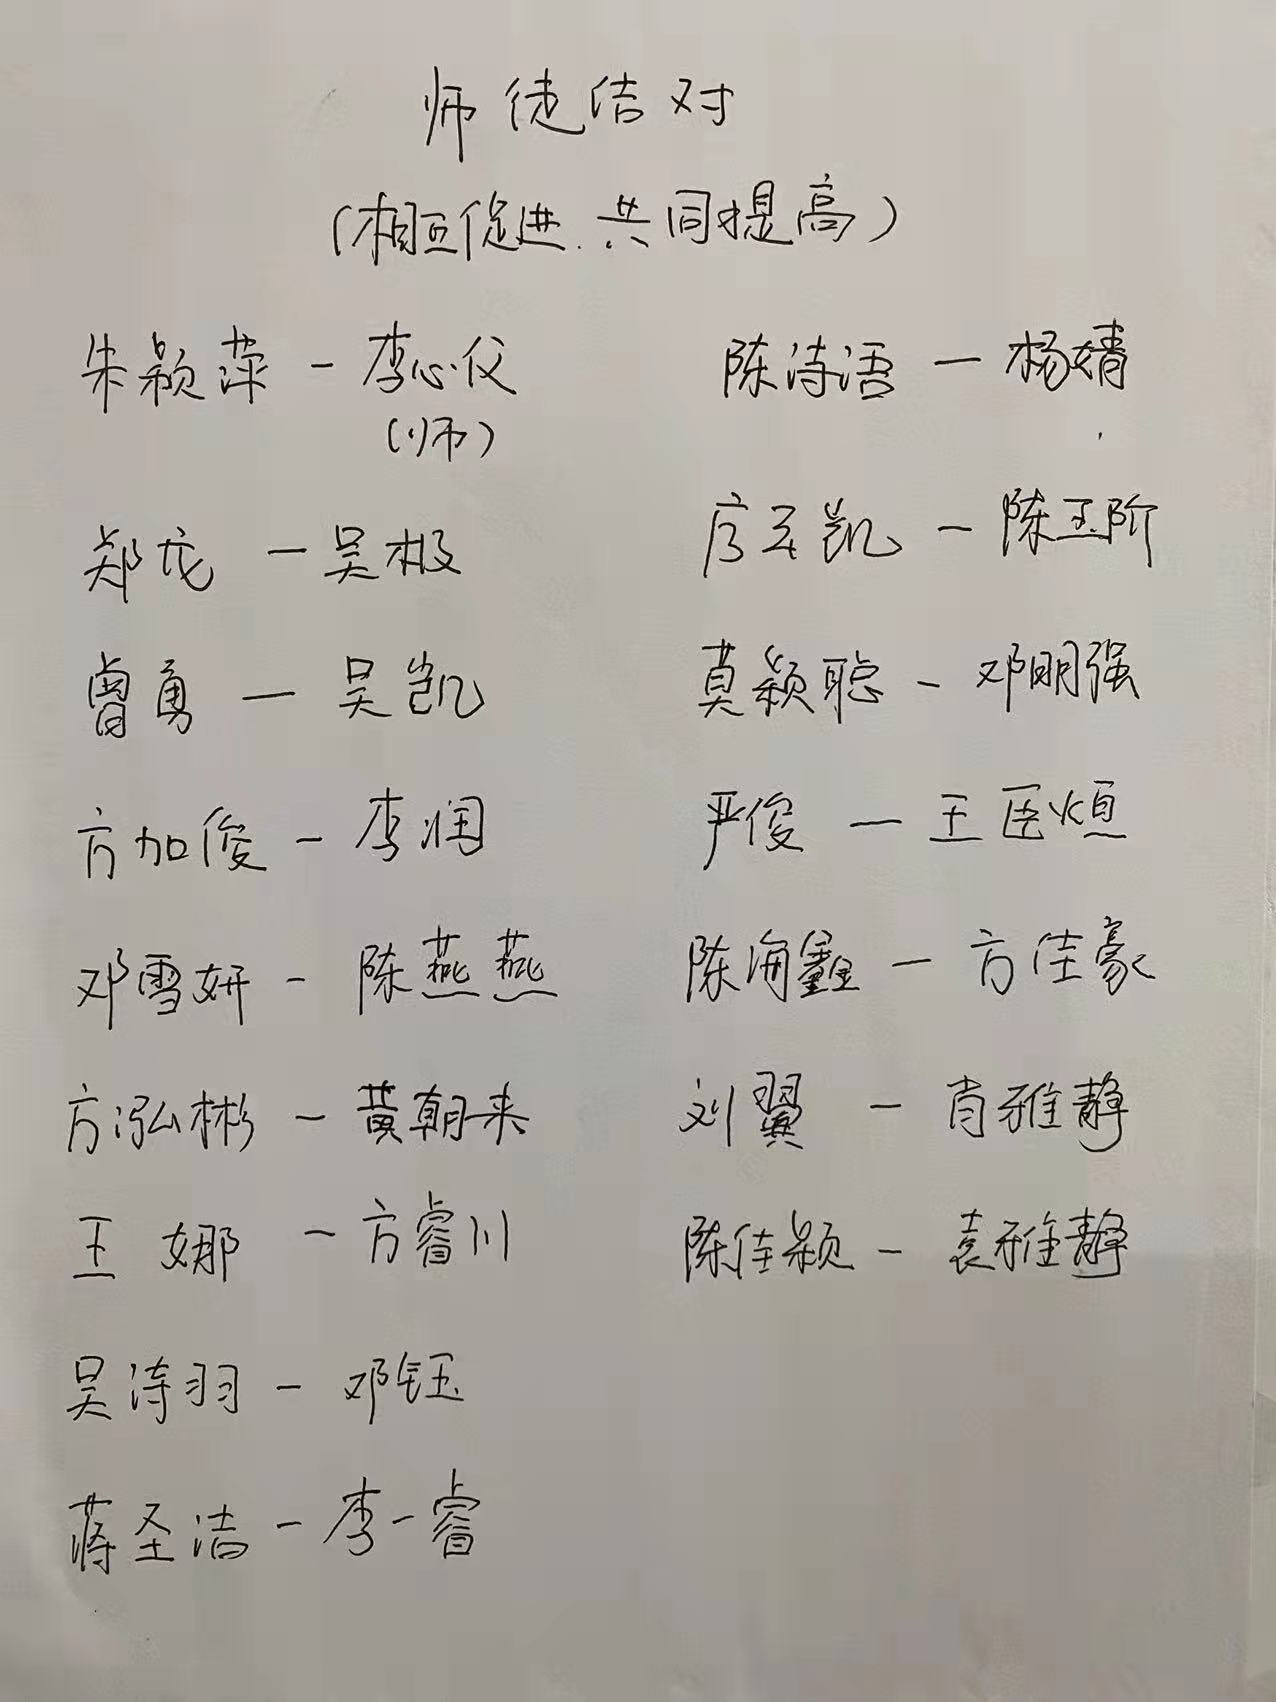 师徒结对
(相互促进.共同提高)
朱颖萍 - 李心仪
(师)
郑龙 - 吴极
曾勇 - 吴凯
方加俊 - 李润
邓雪妍 - 陈燕燕
方泓彬 - 黄朝来
王娜 - 方睿川
吴诗羽 - 邓钰
蒋圣洁 - 李一睿
陈诗语 - 杨婧
凯 - 陈玉阶
莫颖聪 - 邓明强
严俊 - 王臣烜
陈海鑫 - 方佳豪
刘翼 - 肖雅静
陈佳颖 - 袁雅静